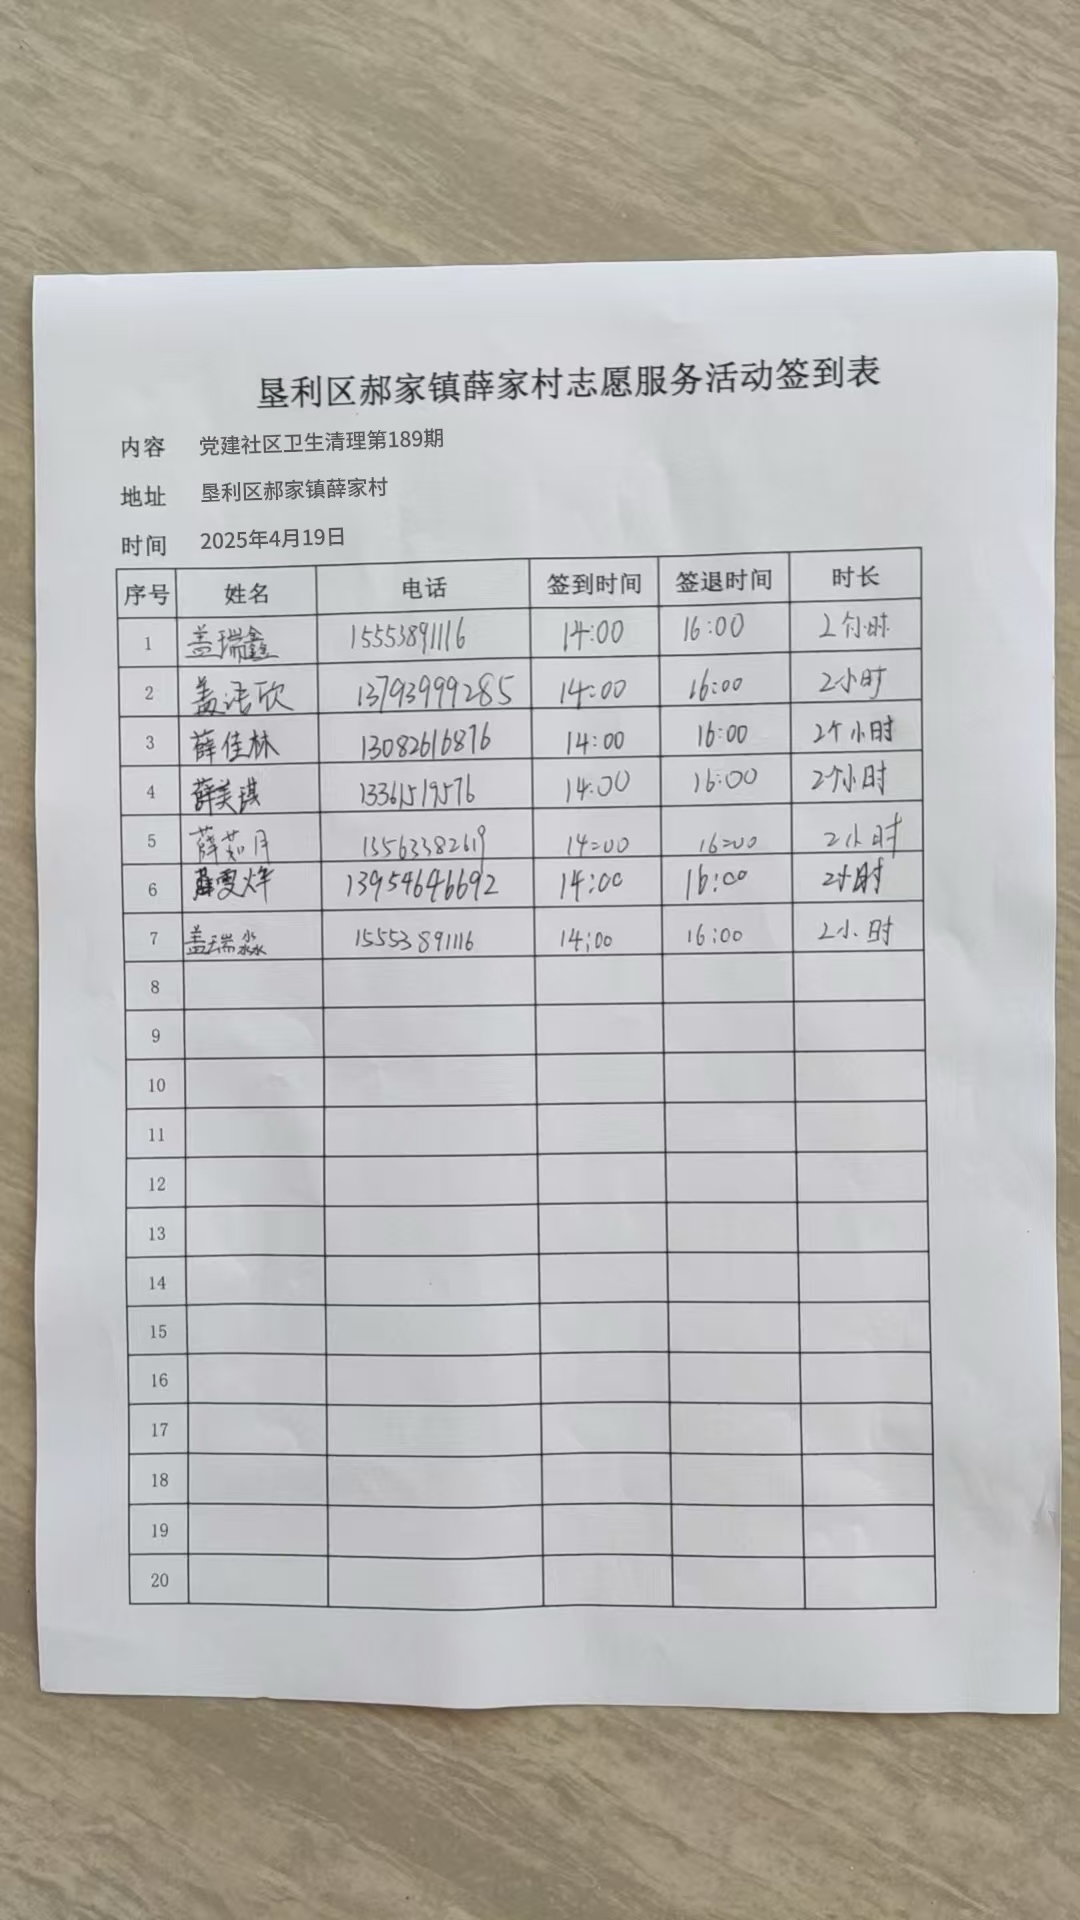 垦利区郝家镇薛家村志愿服务活动签到表
内容 党建社区卫生清理第189期
地址 垦利区郝家镇薛家村
时间 2025年4月19日
序号 姓名 电话 签到时间 签退时间 时长
1 盖瑞鑫 15553891116 14:00 16:00 2个小时
2 盖语欣 13793999285 14:00 16:00 2小时
3 薛佳林 13082616876 14:00 16:00 2个小时
4 薛美琪 13361519576 14:00 16:00 2个小时
5 薛茹月 15563382619 14:00 16:00 2小时
6 薛雯烊 13954646692 14:00 16:00 2小时
7 盖瑞淼 15553891116 14:00 16:00 2小时
8
9
10
11
12
13
14
15
16
17
18
19
20